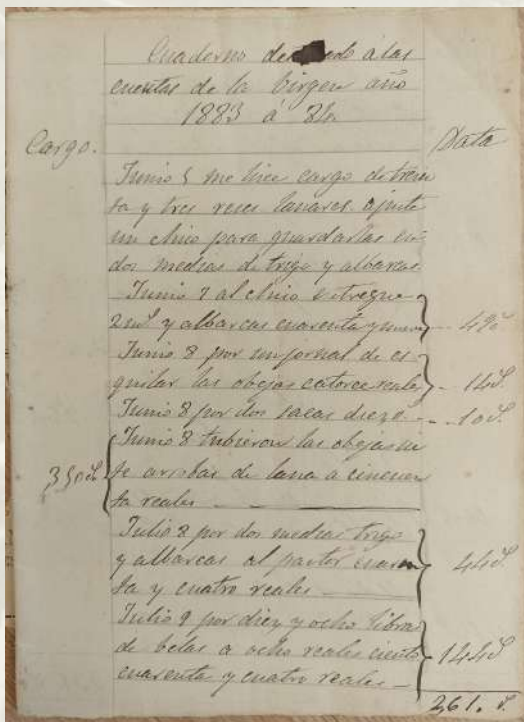 Cuaderno de a las
cuentas de la birgen año
1883 á 84.
Cargo. Data
Junio 5 me hice cargo de trein
ta y tres reses lanares. ajuste
un chico para guardarlas en
dos medias de trigo y albarcas
Junio 7 al chico entregue
y albarcas cuarenta y nueve 49
Junio 8 por un jornal de es
quilar las obejas catorce reales 14
Junio 8 por dos sacas diez 10
Junio 8 tubieron las obejas sie
te arrobas de lana a cincuen
350
ta reales
Julio 8 por dos medias trigo
y albarcas al pastor cuaren
ta y cuatro reales 44
Julio 9 por diez y ocho libras
de belas a ocho reales ciento
cuarenta y cuatro reales 144
261.